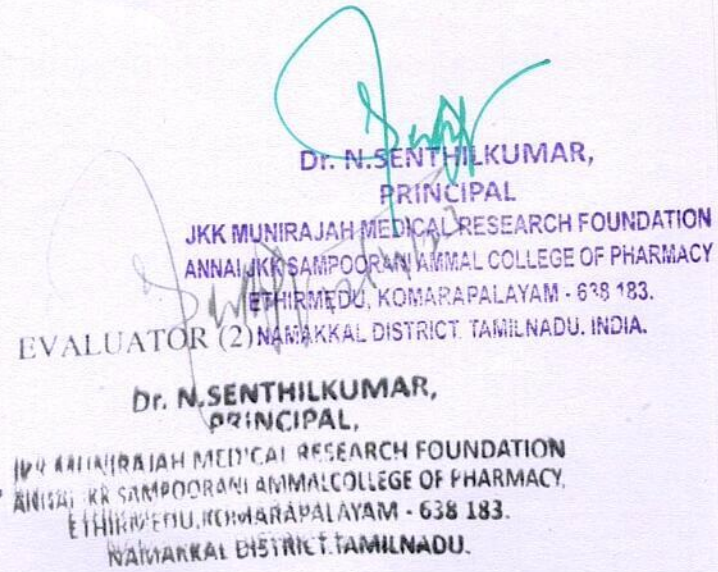 Dr. N.SENTHILKUMAR,
PRINCIPAL
JKK MUNIRAJAH MEDICAL RESEARCH FOUNDATION
ANNAI JKK SAMPOORANI AMMAL COLLEGE OF PHARMACY
ETHIRMEDU, KOMARAPALAYAM - 638 183.
EVALUATOR (2) NAMAKKAL DISTRICT. TAMILNADU. INDIA.
Dr. N.SENTHILKUMAR,
PRINCIPAL,
MUNIRAJAH MEDICAL RESEARCH FOUNDATION
ANNAI SAMPOORANI AMMALCOLLEGE OF PHARMACY,
ETHIRMEDU, KOMARAPALAYAM - 638 183.
NAMAKKAL DISTRICT.TAMILNADU.